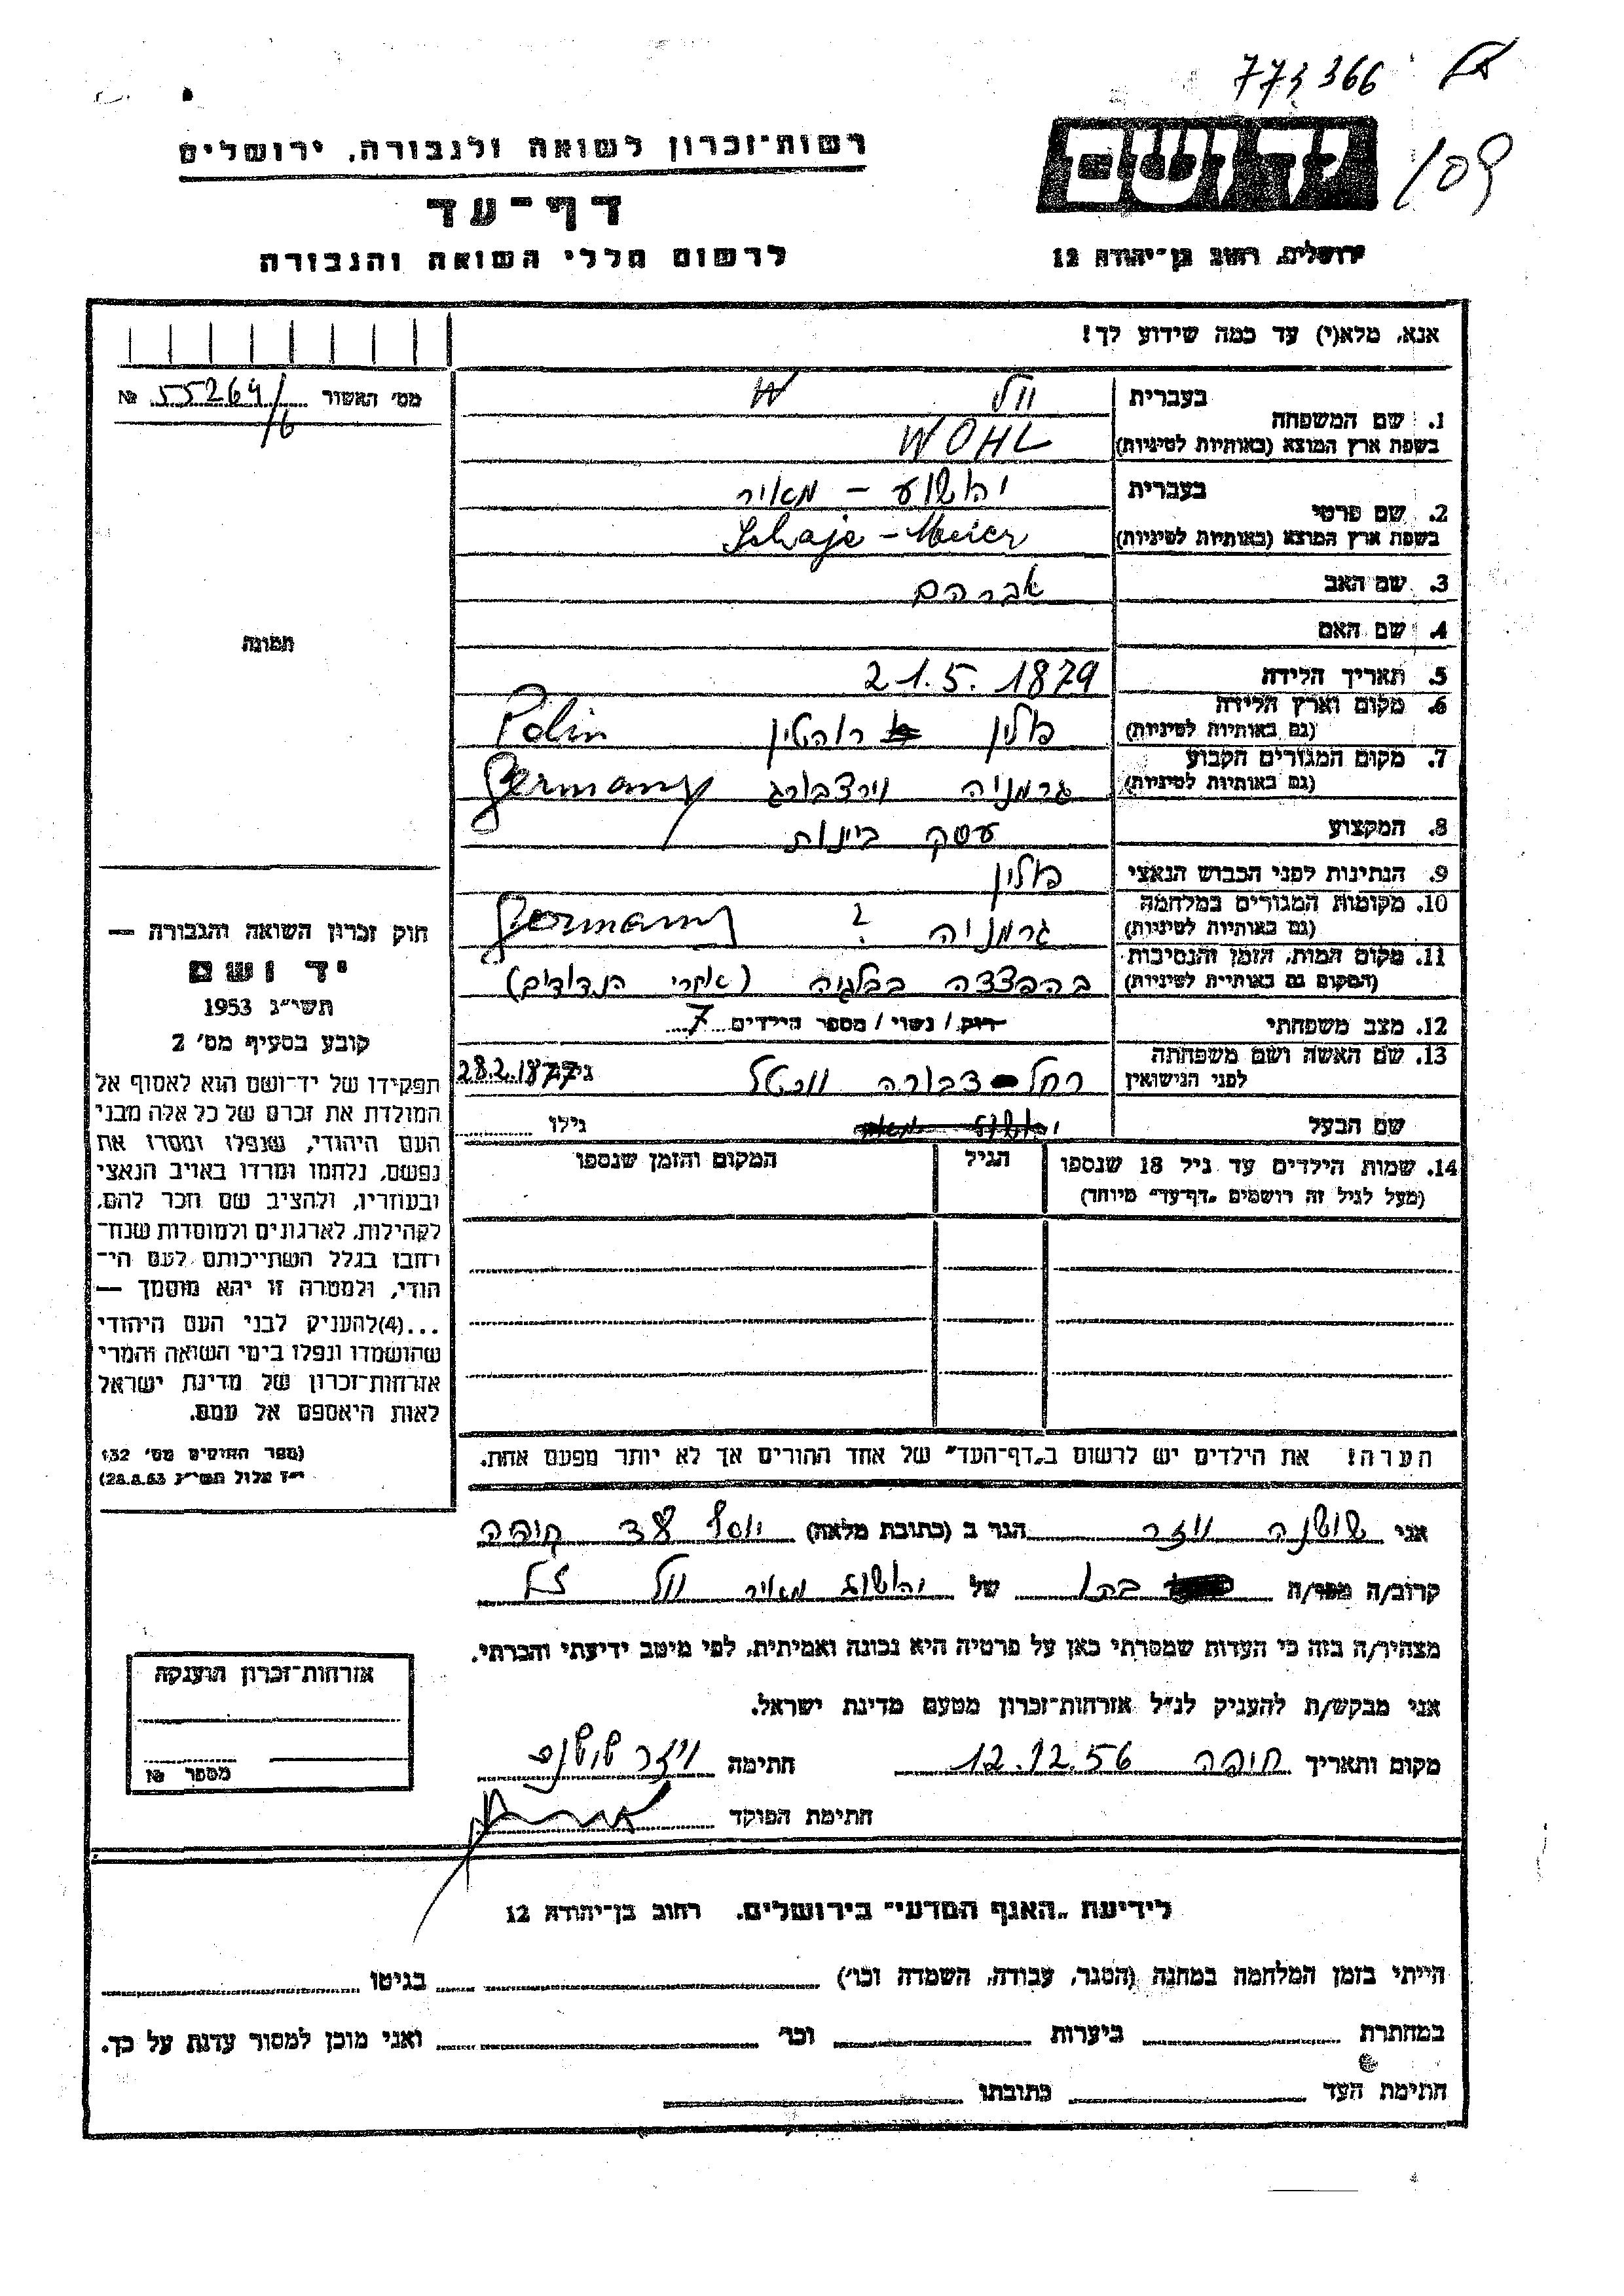 773366
109
יד ושם
ירושלים, רחוב בן־יהודה 12
רשות־זכרון לשואה ולגבורה, ירושלים
דף־עד
לרשום חללי השואה והגבורה
אנא, מלא(י) עד כמה שידוע לך!
מס׳ האשור № 55264/6
1. שם המשפחה
בעברית וול W
בשפת ארץ המוצא (באותיות לטיניות) WOHL
2. שם פרטי
בעברית יהושע – מאיר
בשפת ארץ המוצא (באותיות לטיניות) Schaje – Meier
3. שם האב אברהם
4. שם האם
5. תאריך הלידה 21.5.1879
6. מקום וארץ הלידה
(גם באותיות לטיניות) פולין רוהטין Polin
7. מקום המגורים הקבוע
(גם באותיות לטיניות) גרמניה וירצבורג Germany
8. המקצוע עסק
9. הנתינות לפני הכבוש הנאצי פולין
10. מקומות המגורים במלחמה
(גם באותיות לטיניות) גרמניה ? Germany
11. מקום המות, הזמן והנסיבות
(המקום גם באותיות לטיניות) בהפצצה בבלגיה (אחרי הנדודים)
12. מצב משפחתי רוק / נשוי / מספר הילדים 7
13. שם האשה ושם משפחתה
לפני הנישואין רחל דבורה ורטל גילה 28.2.1877
שם הבעל גילו
14. שמות הילדים עד גיל 18 שנספו
(מעל לגיל זה רושמים „דף־עד״ מיוחד)
הגיל
המקום והזמן שנספו
הערה! את הילדים יש לרשום ב„דף־העד״ של אחד ההורים אך לא יותר מפעם אחת.
תמונה
חוק זכרון השואה והגבורה —
יד ושם
תשי״ג 1953
קובע בסעיף מס׳ 2
תפקידו של יד־ושם הוא לאסוף אל
המולדת את זכרם של כל אלה מבני
העם היהודי, שנפלו ומסרו את
נפשם, נלחמו ומרדו באויב הנאצי
ובעוזריו, ולהציב שם וזכר להם,
לקהילות, לארגונים ולמוסדות שנח־
רחבו בגלל השתייכותם לעם הי־
הודי, ולמטרה זו יהא מוסמך —
...(4)להעניק לבני העם היהודי
שהושמדו ונפלו בימי השואה והמרי
אזרחות־זכרון של מדינת ישראל
לאות היאספם אל עמם.
(ספר החוקים מס׳ 132
י״ז אלול תשי״ג 28.8.53)
אני שושנה ויזר הגר ב (כתובת מלאה) יוסף 38 חיפה
קרוב/ה מפי/ה בתו של יהושע מאיר וול ז״ל
מצהיר/ה בזה כי העדות שמסרתי כאן על פרטיה היא נכונה ואמיתית, לפי מיטב ידיעתי והכרתי.
אני מבקש/ת להעניק לנ״ל אזרחות־זכרון מטעם מדינת ישראל.
מקום ותאריך חיפה 12.12.56 חתימה ויזר שושנה
חתימת הפוקד
אזרחות־זכרון הוענקה
מספר №
לידיעת „האגף המדעי״ בירושלים, רחוב בן־יהודה 12
הייתי בזמן המלחמה במחנה (הסגר, עבודה, השמדה וכו׳) בגיטו
במחתרת ביערות וכו׳ ואני מוכן למסור עדות על כך.
חתימת העד כתובתו